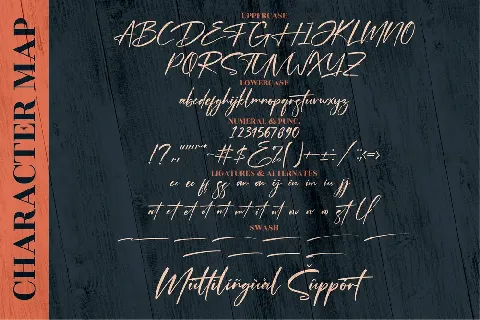 CHARACTER MAP
UPPERCASE
ABCDEFGHIJKLMNO
PQRSTUVWXYZ
LOWERCASE
abcdefghijklmnopqrstuvwxyz
NUMERAL & PUNC.
1234567890
LIGATURES & ALTERNATES
SWASH
Multilingual Support